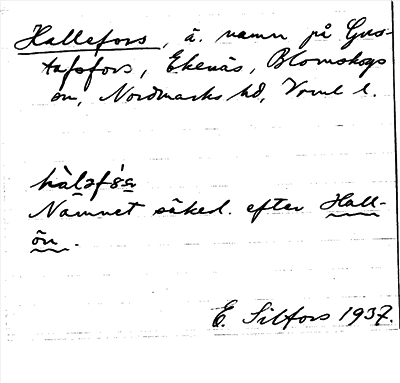 Hallefors, ä. namn på Gus-
tafsfors, Ekenäs, Blomskogs
sn, Nordmarks hd, Vrml l.
Namnet säkerl. efter Hall-
ön.
E. Silfors 1937.